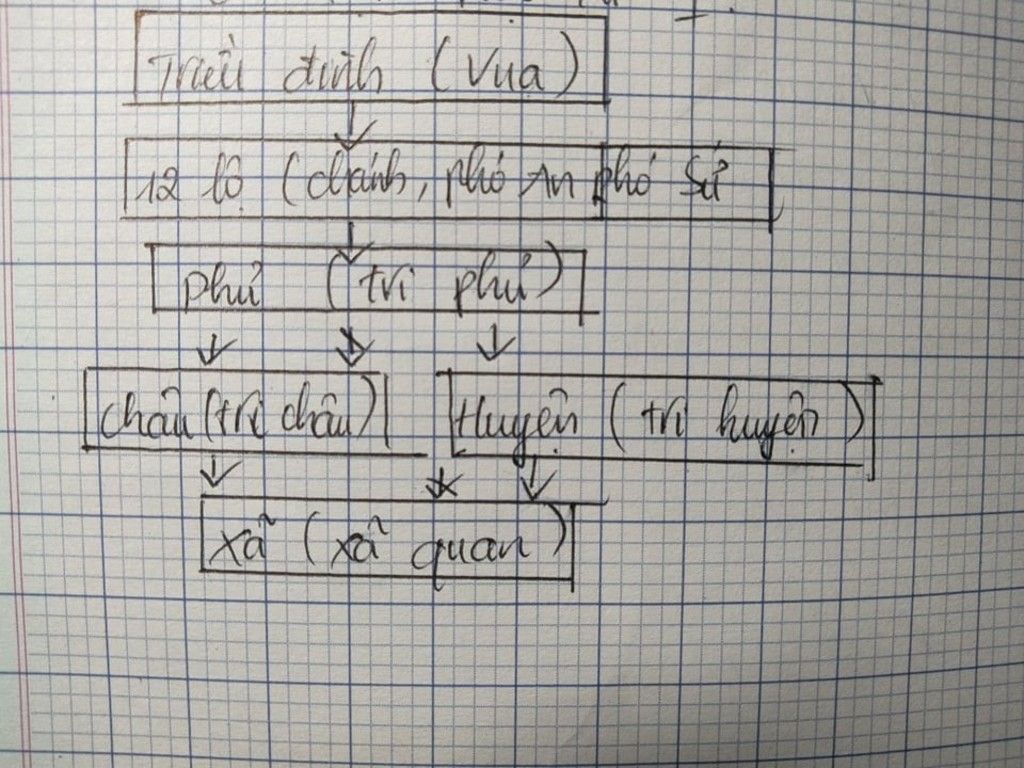 Triều đình (Vua)
12 lộ (chánh, phó An phó sứ
phủ (tri phủ)
châu (tri châu) Huyện (tri huyện)
xã (xã quan)